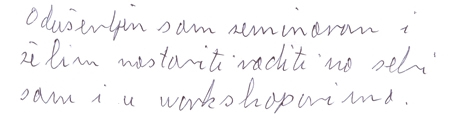 Oduševljen sam seminarom i
želim nastaviti raditi na sebi
sam i u workshopovima.